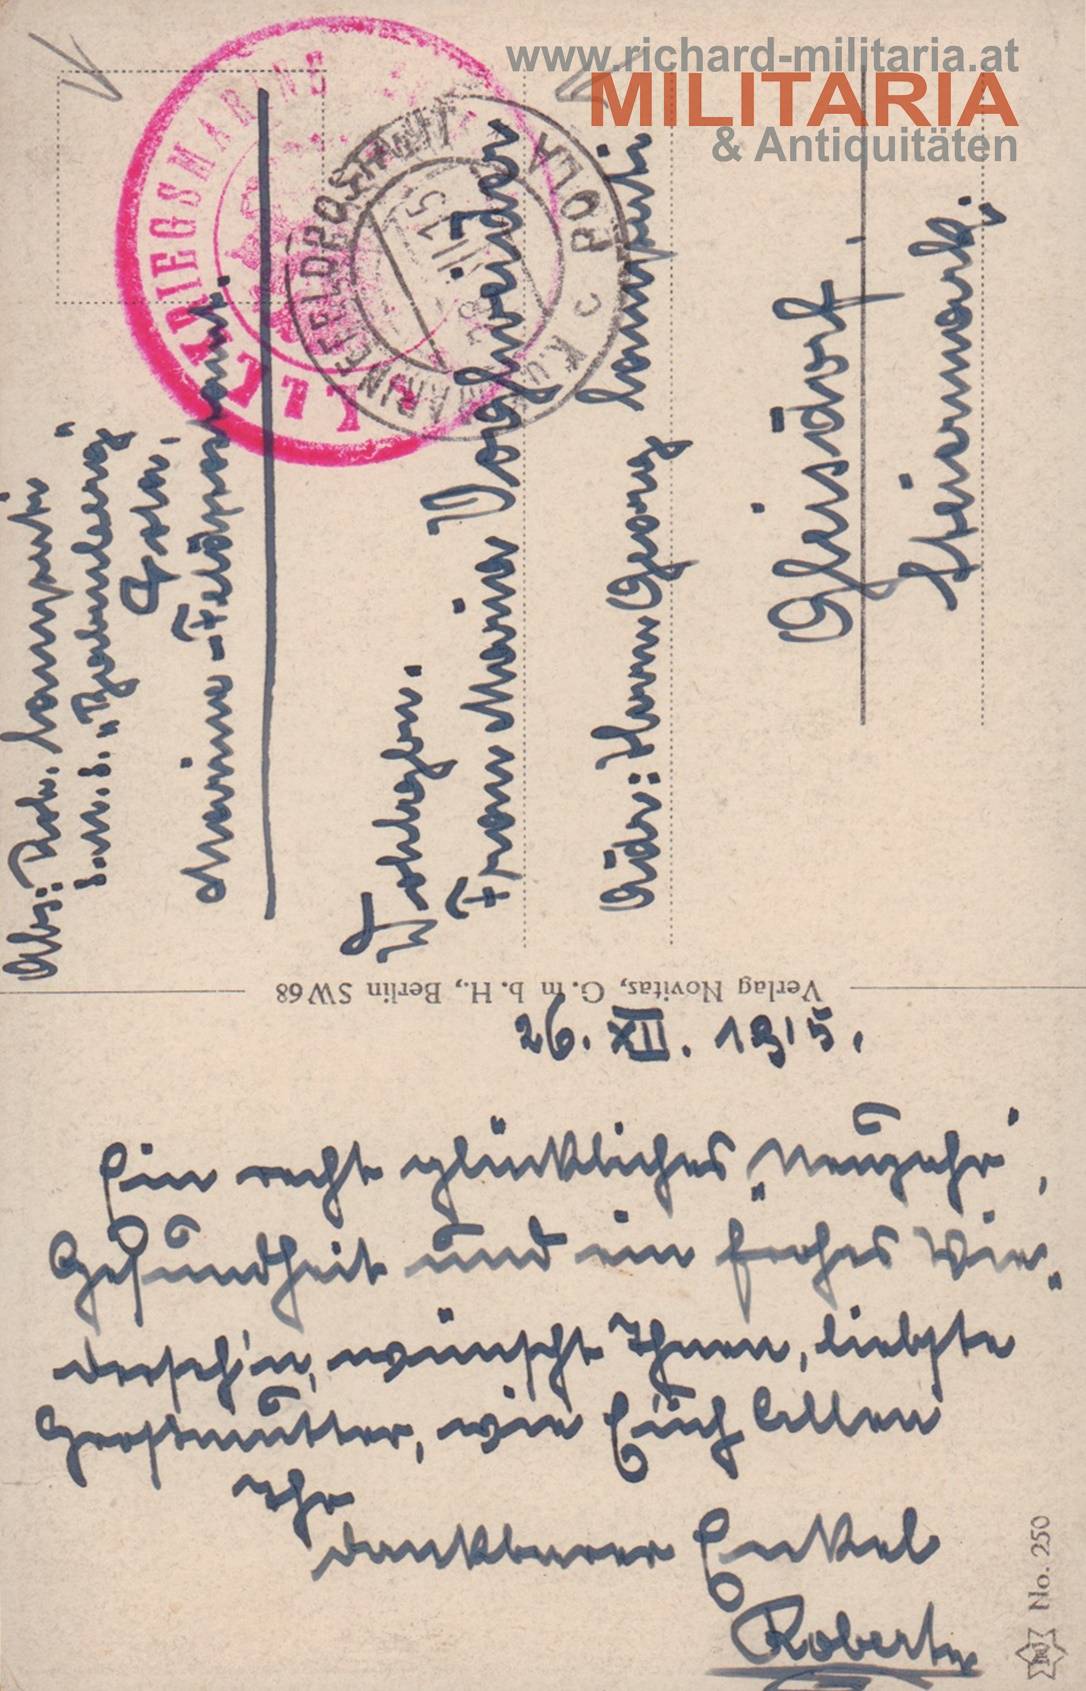 www.richard-militaria.at
MILITARIA
& Antiquitäten
K.u.K. KRIEGSMARINE
K.u.K. MARINEFELDPOSTAMT
POLA
28. XII 15
Abs: Rob. Lampert
S.M.S. „Babenberg"
Pola.
Marine-Feldpostamt.
Wohlgb.
Frau Maria
Adr: Herrn Georg Lampert
Gleisdorf,
Steiermark.
Verlag Novitas, G. m. b. H., Berlin SW 68
26. XII. 1915.
Ein recht glückliches „Neujahr",
Gesundheit und ein frohes Wie-
derseh'n, wünscht Ihnen, liebste
Großmutter, wie Euch Allen
Ihr
dankbarer Enkel
Robert
No. 250